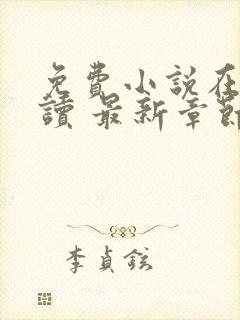 免費小説在
讀 最新章節
李貞鉉